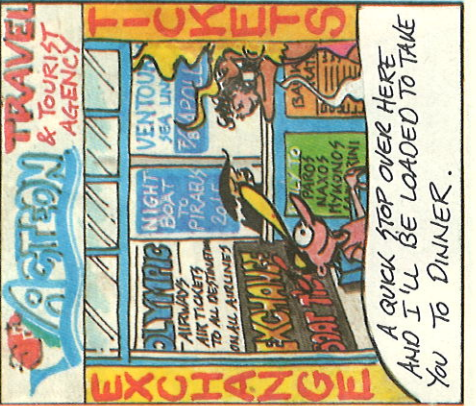 ACTEON TRAVEL
& TOURIST
AGENCY
EXCHANGE
TICKETS
OLYMPIC
AIRWAYS
AIR TICKETS
TO ALL DESTINATION
ON ALL AIRLINES
NIGHT
BOAT
TO
VENTOU
SEA LIN
EXCHANGE
BOAT TIC
PAROS
NAXOS
MYKONOS
A QUICK STOP OVER HERE
AND I'LL BE LOADED TO TAKE
YOU TO DINNER.